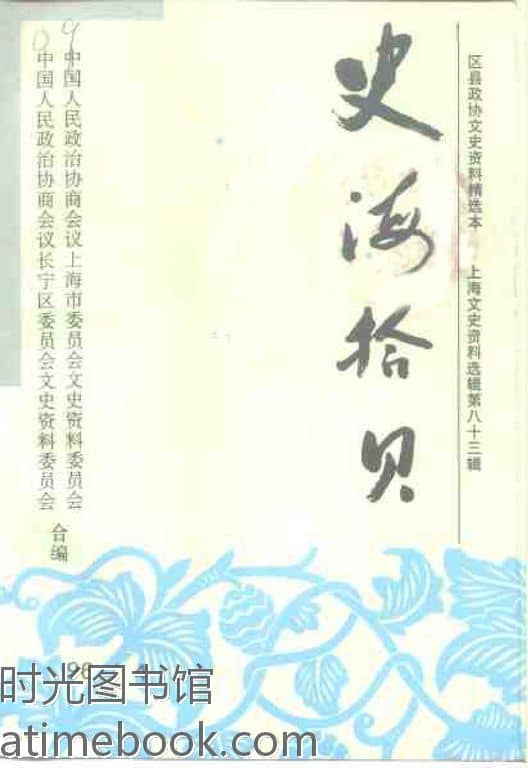 区县政协文史资料精选本 上海文史资料选辑第八十三辑
史海拾贝
中国人民政治协商会议上海市委员会文史资料委员会
中国人民政治协商会议长宁区委员会文史资料委员会
合编
时光图书馆
atimebook.com